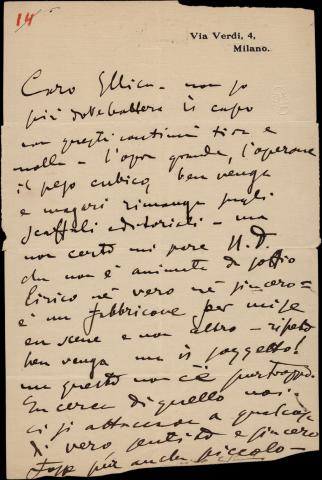 14
Via Verdi, 4,
Milano.
Caro Illica - non so
più dove battere il capo
con questi continui tira e
molla - l'opera grande, l'operone
il pezzo cubico, ben venga
e magari rimanga sugli
scaffali editoriali - ma
non certo mi pare N. D.
che non è animata da soffio
lirico nè vero nè sincero =
è un fabbricone per mise
en scene e non altro - ripeto
ben venga ma il soggetto!
ma questo non c'è purtroppo.
In cerca di quello noi
ci si attacca a qualcosa
di vero sentito e sincero
fosse pur anche piccolo -